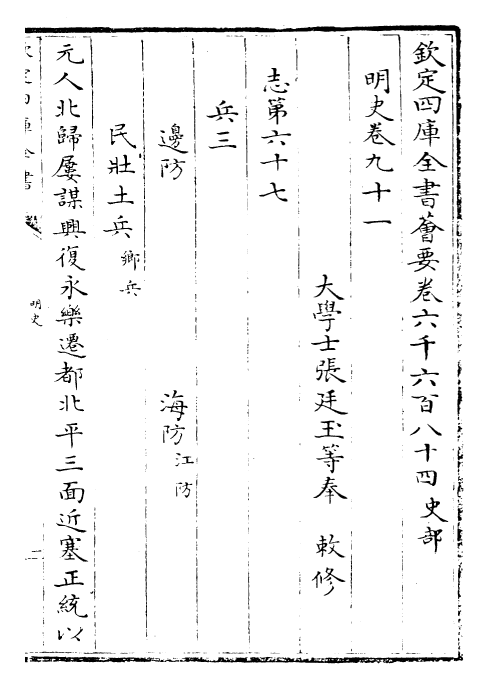 欽定四庫全書薈要卷六千六百八十四 史部
明史卷九十一
大學士張廷玉等奉 敕修
志第六十七
兵三
邊防 海防江防
民壯土兵鄉兵
元人北歸屢謀興復永樂遷都北平三面近塞正統以
欽定四庫全書
明史
一